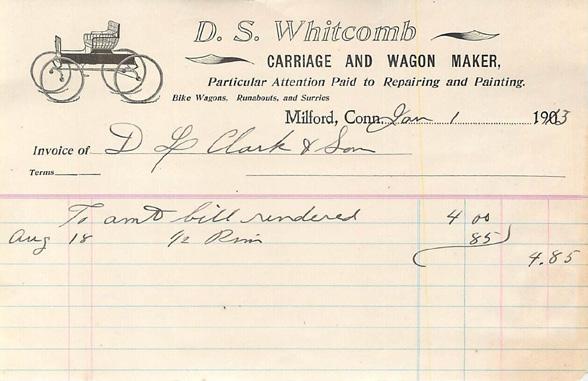 D. S. Whitcomb
CARRIAGE AND WAGON MAKER,
Particular Attention Paid to Repairing and Painting.
Bike Wagons, Runabouts, and Surries
Milford, Conn. Jan 1 1903
Invoice of D L Clark & Son
Terms
To amt bill rendered 4 00
Aug 18 1/2 Rim 85
4.85